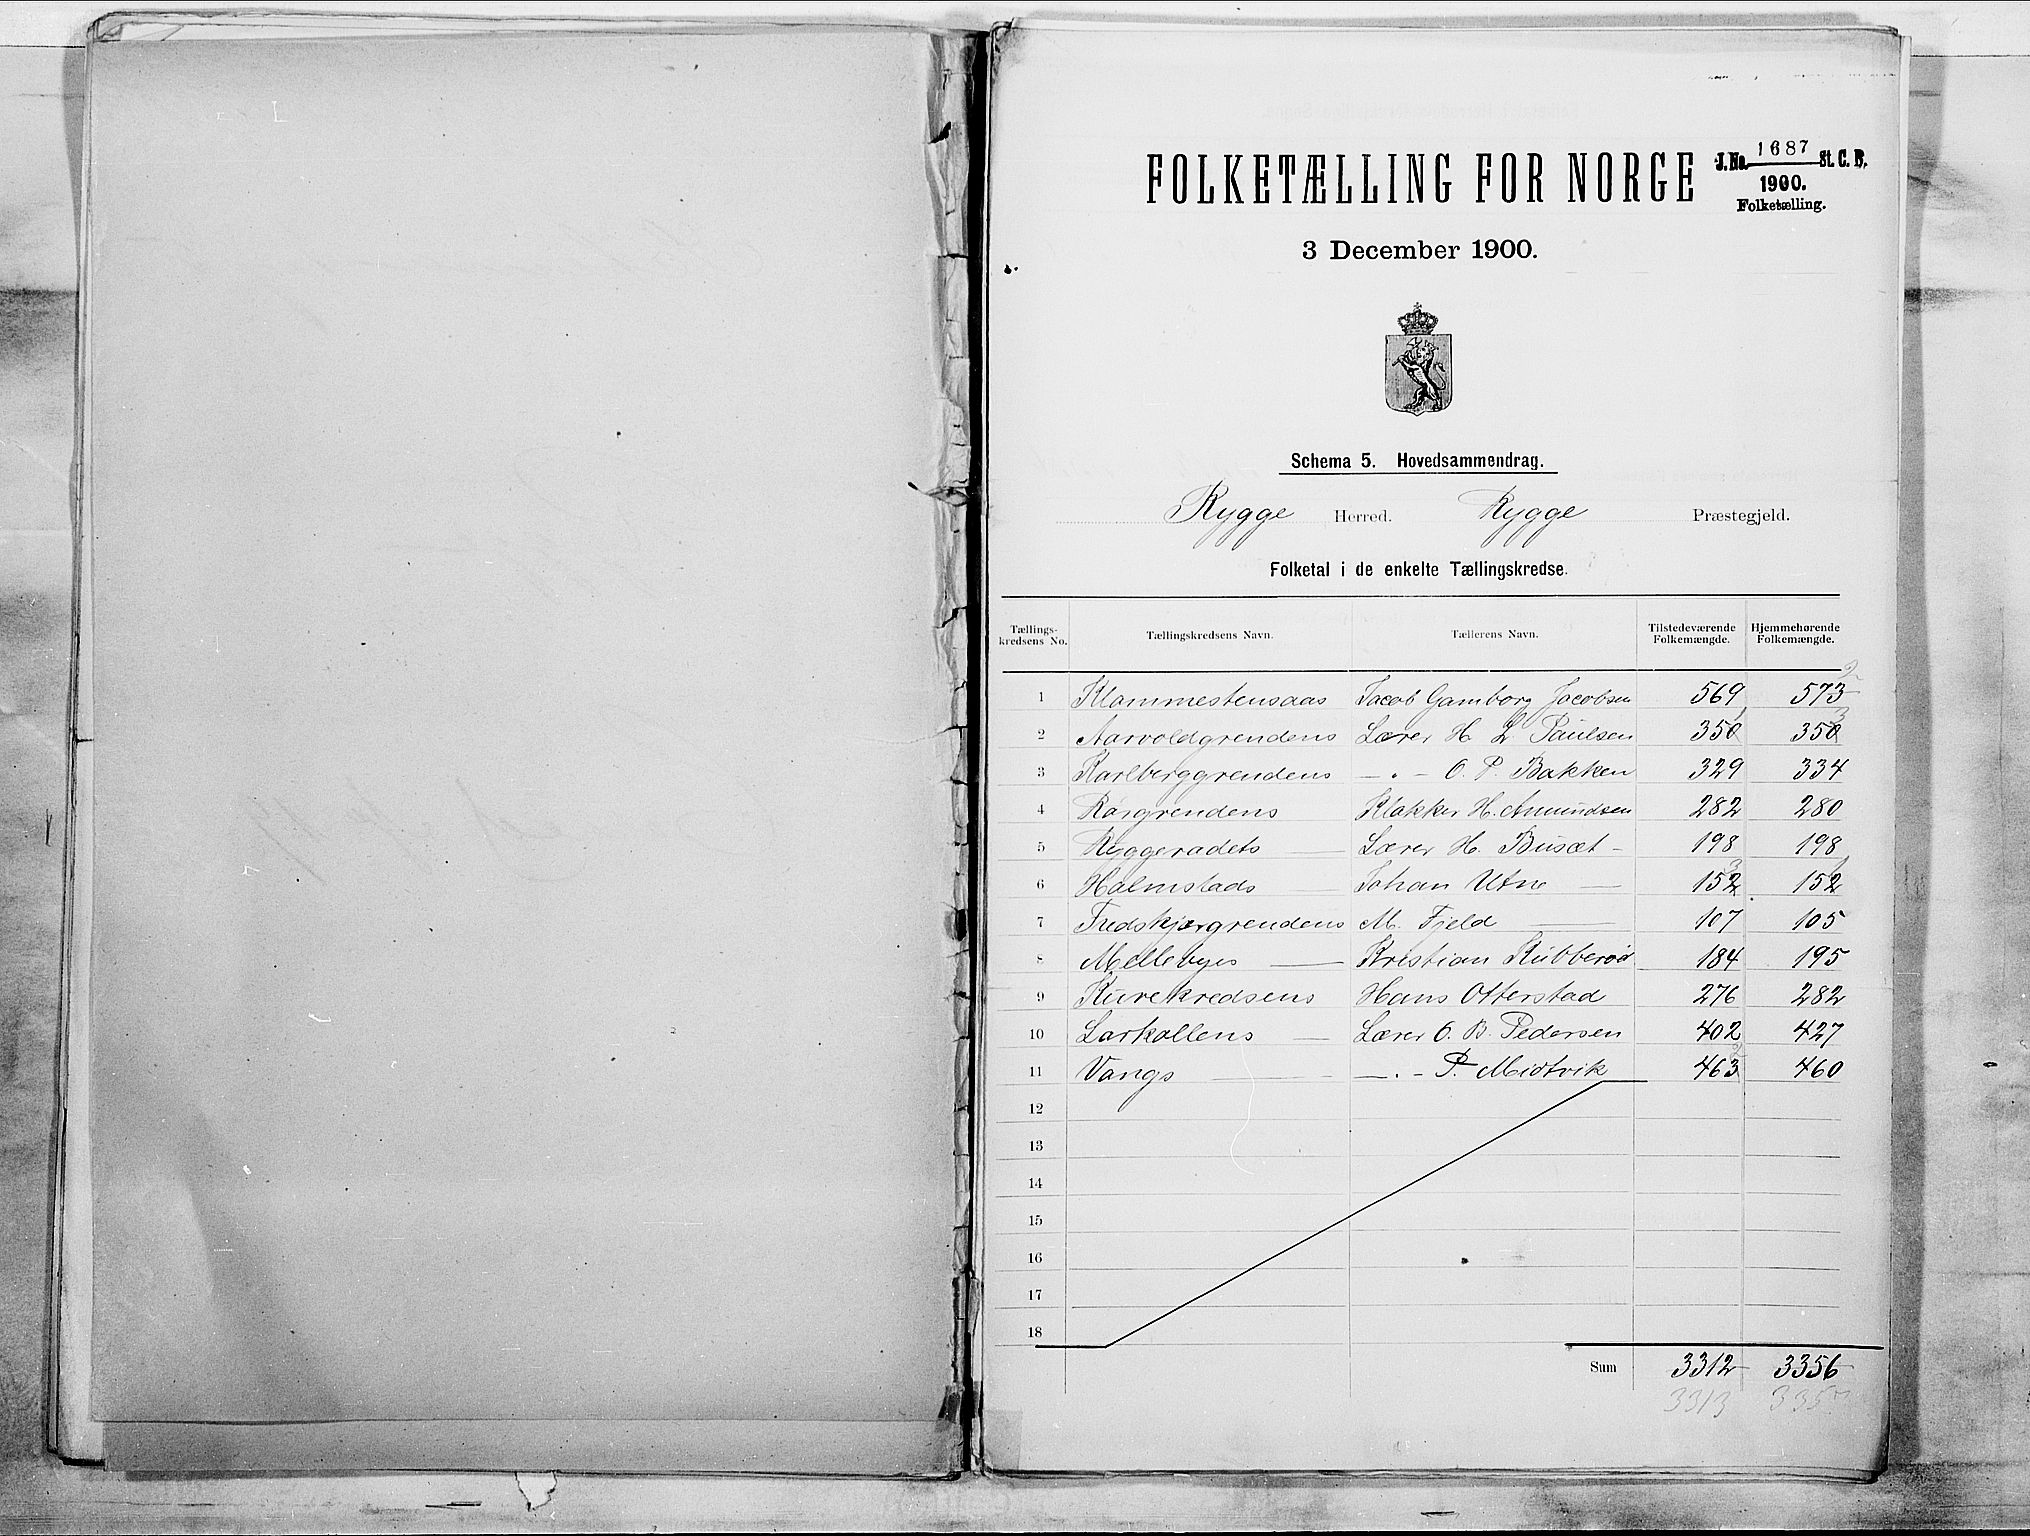 FOLKETÆLLING FOR NORGE
J.No. 1687 St. C. B.
1900.
Folketælling.
3 December 1900.
Schema 5. Hovedsammendrag.
Rygge Herred. Rygge Præstegjeld.
Folketal i de enkelte Tællingskredse.
Tællingskredsens No. Tællingskredsens Navn. Tællerens Navn. Tilstedeværende Folkemængde. Hjemmehørende Folkemængde.
1 Klommestensaas Jacob Gamborg Jacobsen 569 573
2 Aarvoldgrendens Lærer H. L. Paulsen 350 350
3 Karlberggrendens — " — O. P. Bakken 329 334
4 Rørgrendens Klokker H. Amundsen 282 280
5 Ryggeradets — Lærer H. Busæt - 198 198
6 Halmstads — Johan Utne — 152 152
7 Fredskjærgrendens M. Fjeld — 107 105
8 Mellebyes — Kristian Kubberød 184 195
9 Kurekredsens Hans Otterstad 276 282
10 Larkollens — Lærer O. B. Pedersen 402 427
11 Vangs — — " — P. Midtvik 463 460
12
13
14
15
16
17
18
Sum 3312 3356
3313 335